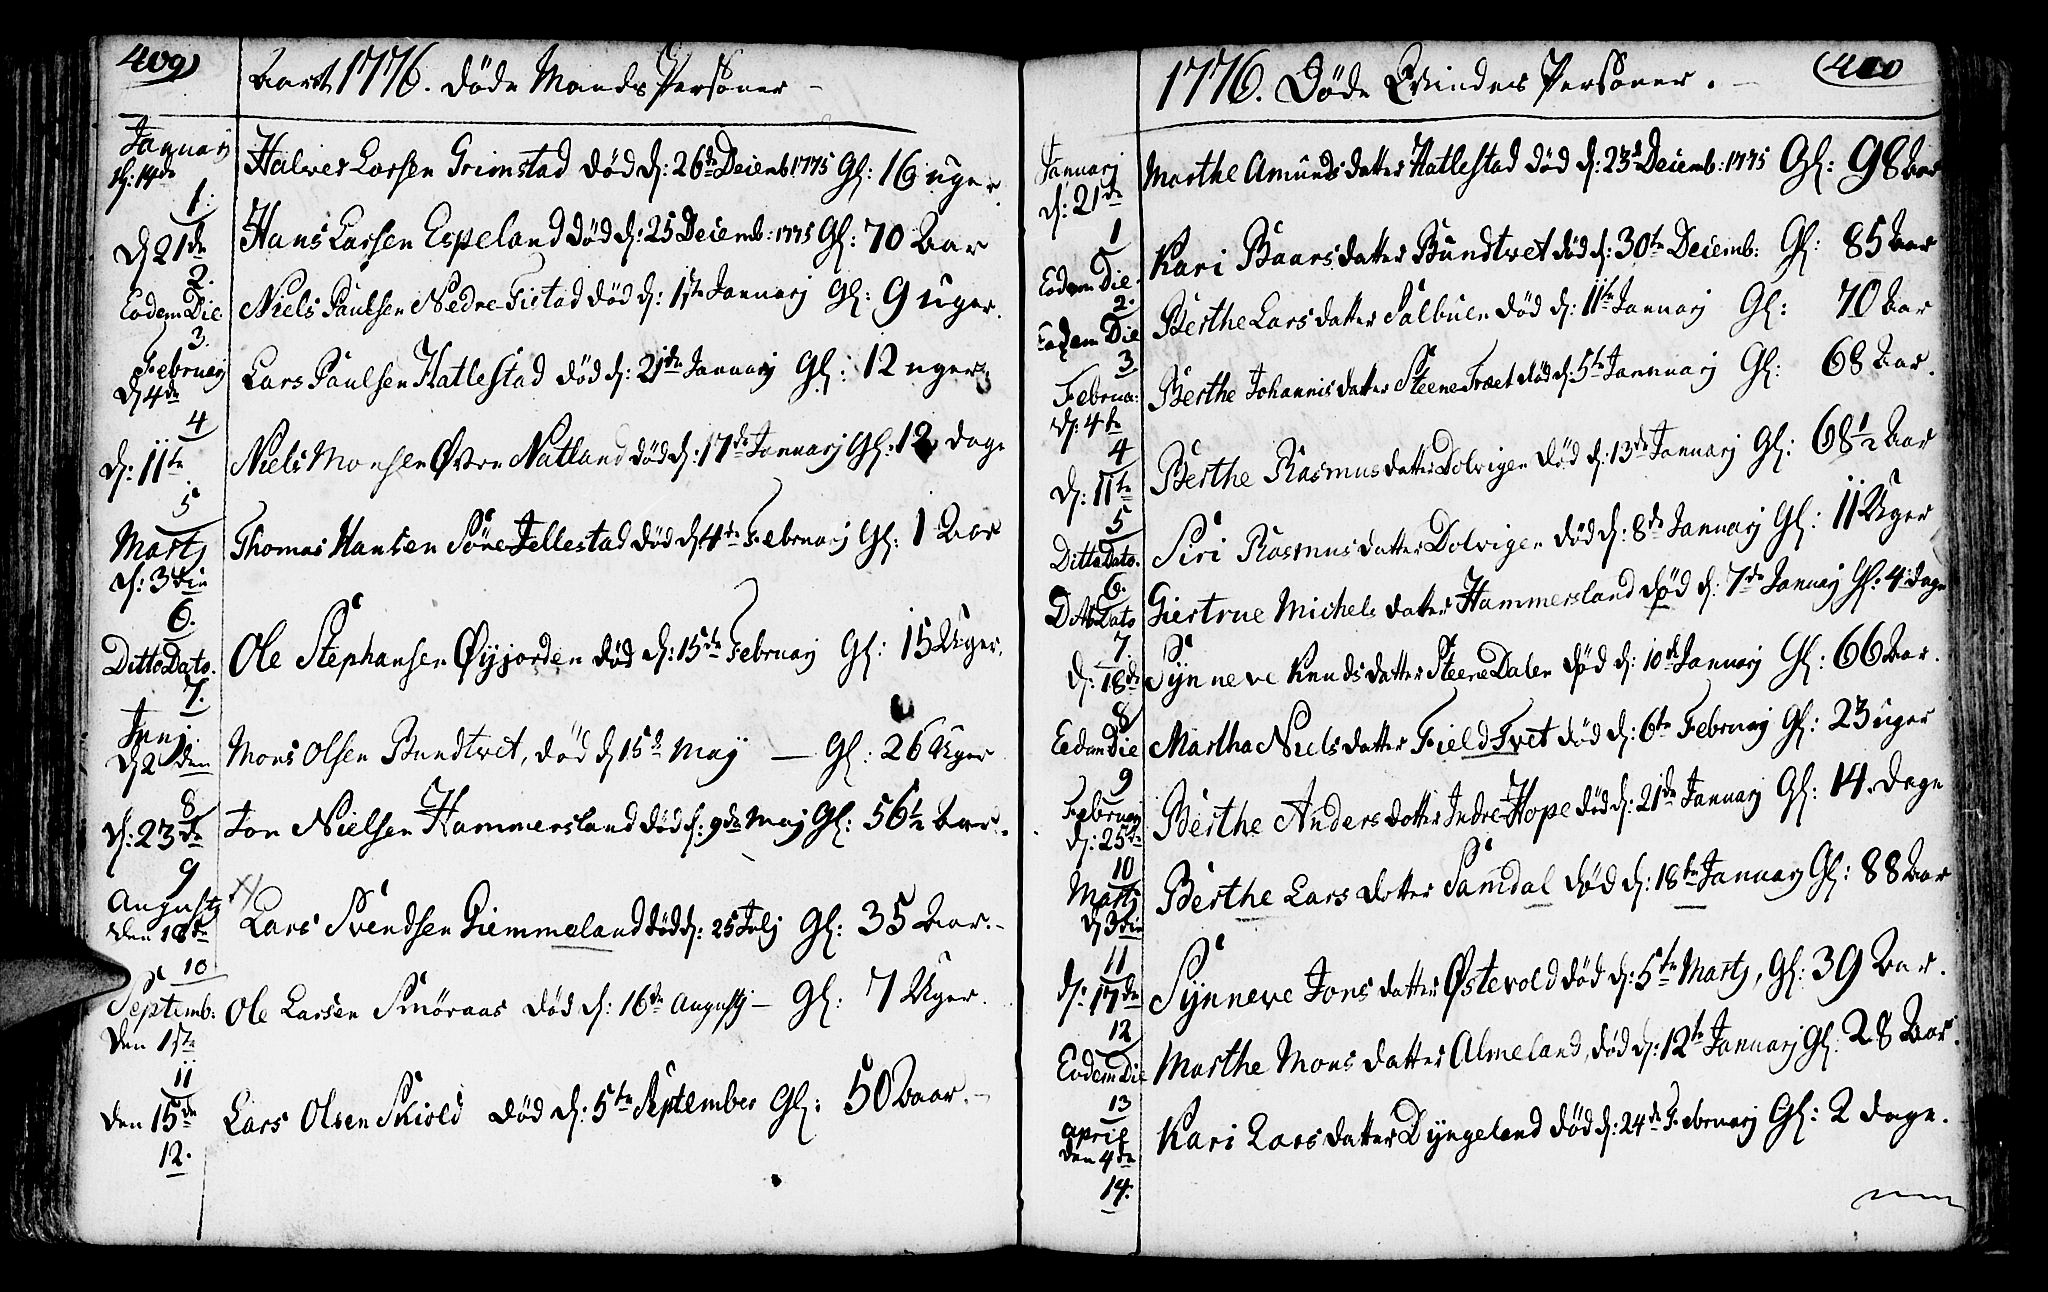 409
Aaret 1776. Døde Mands Personer
Januarj
d: 14de
1.
Halver Larsen Grimstad død d: 26de Decemb 1775 Gl: 16 uger
d 21de
2.
Hans Larsen Espeland død d: 25 Decemb: 1775 Gl: 70 Aar
Eodem Die
3.
Niels Paulsen Nedre Tistad død d: 1ste Januarj Gl: 9 uger.
Februarj
d 4de
4
Lars Paulsen Hatlestad død d: 21de Januarj Gl: 12 uger
d: 11te
5
Niels Monsen Øvre Natland død d: 17de Januarj Gl: 12 dage
Martj
d: 3die
6.
Thomas Hansen Søre Jellestad død d 4de Februarj Gl: 1 Aar
Ditto Dato.
7.
Ole Stephansen Øyjorden død d: 15de Februarj Gl: 15 Uger.
Junj.
d 2den
8
Mons Olsen Bundtvet, død d 15de Maij — Gl: 26 Uger
d: 23de
9
Jon Nielsen Hammersland død d: 9de Maj Gl: 56½ Aar.
Augustj
den 18de
10
Lars Svendsen Giemmeland død d: 25 Julj Gl: 35 Aar.
Septemb:
den 1ste
11
Ole Larsen Smøraas død d: 16de Augustj — Gl: 7 Uger.
den 15de
12.
Lars Olsen Skiold død d: 5te September Gl: 50 Aar.
410
1776. Døde Qvindes Personer.
Januarj
d: 21de
1
Marthe Amunds datter Hatlestad død d: 23de Decemb: 1775 Gl: 98 Aar
Eodem Die
2.
Kari Baars datter Bundtvet død d: 30te Decemb: Gl: 85 Aar
Eodem Die
3
Berthe Lars datter Salbuen død d: 11te Januarj Gl: 70 Aar
Februa:
d: 4te
4
Berthe Johannis datter Steene Træet død d: 5te Januarj Gl: 68 Aar.
d: 11te
5
Berthe Rasmus datter Dolvigen død d: 13de Januarj Gl: 68½ Aar
Ditto Dato.
6.
Siri Rasmus datter Dolvigen død d: 8de Januarj Gl: 11 Uger
Ditto Dato
7.
Giertrue Michels datter Hammersland død d: 7de Januarj Gl: 4 dage
d: 18de
8
Synneve Knuds datter Steene Dalen død d: 10de Januarj Gl: 66 Aar.
Eodem Die
9
Martha Niels datter Field Tvet død d: 6te Februarj Gl: 23 uger
Februarj
d: 25te
10
Berthe Anders datter Indre Hope død d: 21de Januarj Gl: 14. dage
Martj
d 3die
11
Berthe Lars datter Samdal død d: 18te Januarj Gl: 88 Aar
d: 17de
12
Synneve Jons datter Østevold død d: 5te Martj, Gl: 39 Aar.
Eodem Die
13
Marthe Mons datter Almeland, død d: 12te Januarj Gl: 28 Aar.
april
den 4de
14.
Kari Lars datter Dyngeland død d: 24de Februarj Gl: 2 dage.